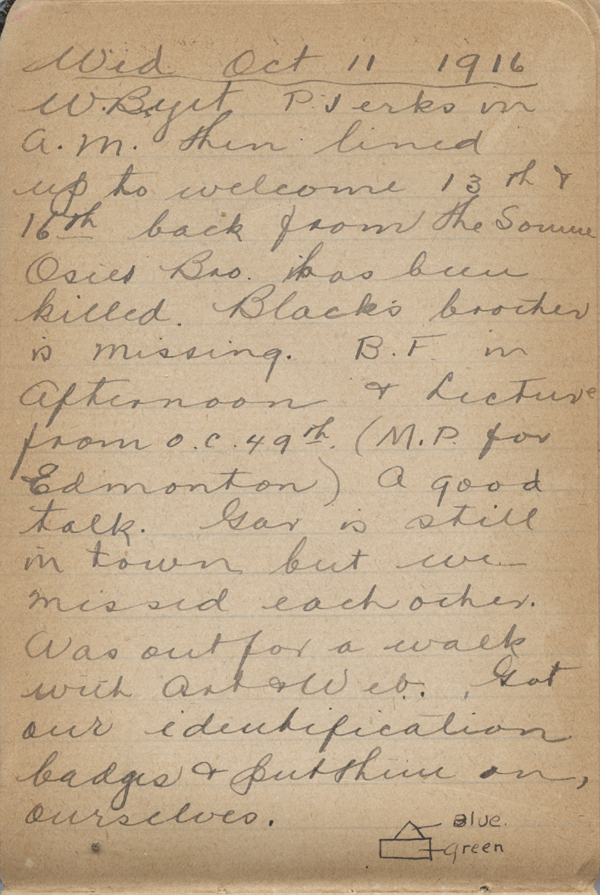 Wed Oct 11 1916
W. P. Jerks in
A.M. then lined
up to welcome 13th &
16th back from the Somme
Bro. has been
killed. Blacks brother
is missing. B.F. in
Afternoon & Lecture
from O.C. 49th. (M.P. for
Edmonton) A good
talk. Gar is still
in town but we
missed each other.
Was out for a walk
with Art & Web. Got
our identification
badges & put them on,
ourselves.
Blue.
green